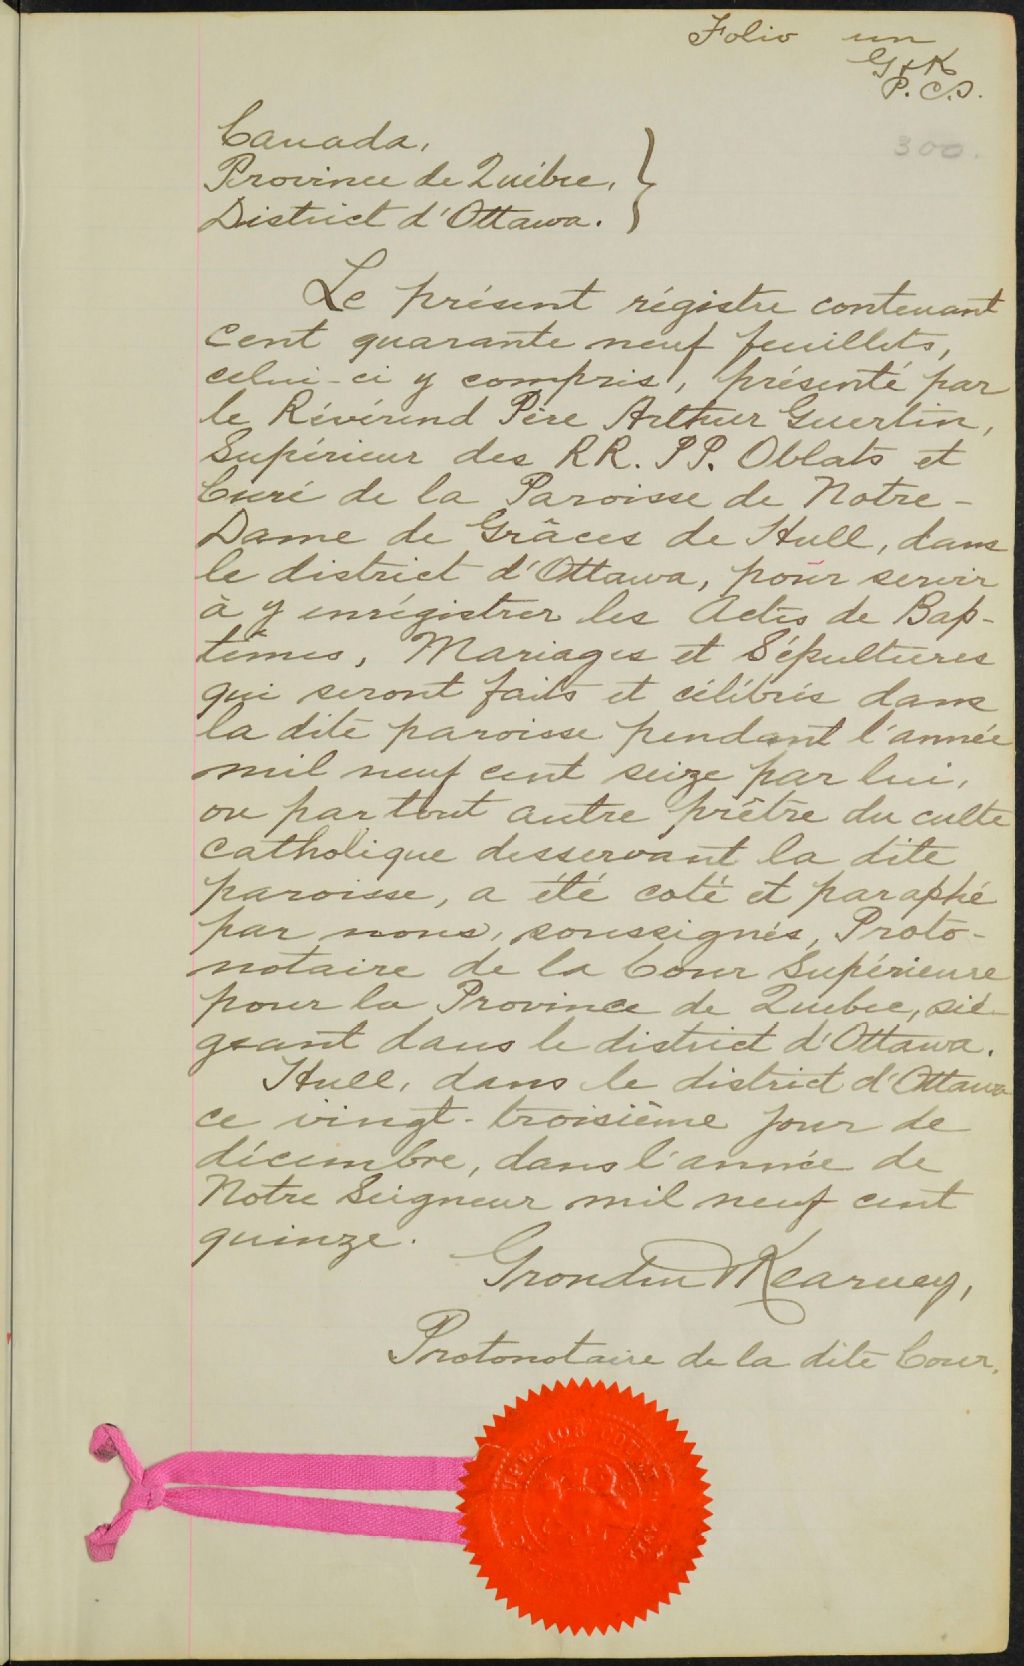 Folio un
G & K
P. C. S.
300.
Canada,
Province de Québec,
District d'Ottawa.
Le présent régistre contenant
cent quarante neuf feuillets,
celui-ci y compris, présenté par
le Révérend Père Arthur Guertin,
Supérieur des RR. PP. Oblats et
Curé de la Paroisse de Notre-
Dame de Grâces de Hull, dans
le district d'Ottawa, pour servir
à y enrégistrer les Actes de Bap-
têmes, Mariages et Sépultures
qui seront faits et célébrés dans
la dite paroisse pendant l'année
mil neuf cent seize par lui,
ou par tout autre prêtre du culte
catholique desservant la dite
paroisse, a été coté et paraphé
par nous, soussignés, Proto-
notaire de la Cour Supérieure
pour la Province de Québec, sié-
geant dans le district d'Ottawa.
Hull, dans le district d'Ottawa
ce vingt-troisième jour de
décembre, dans l'année de
Notre Seigneur mil neuf cent
quinze.
Grondin & Kearney,
Protonotaire de la dite Cour.
SUPERIOR COURT